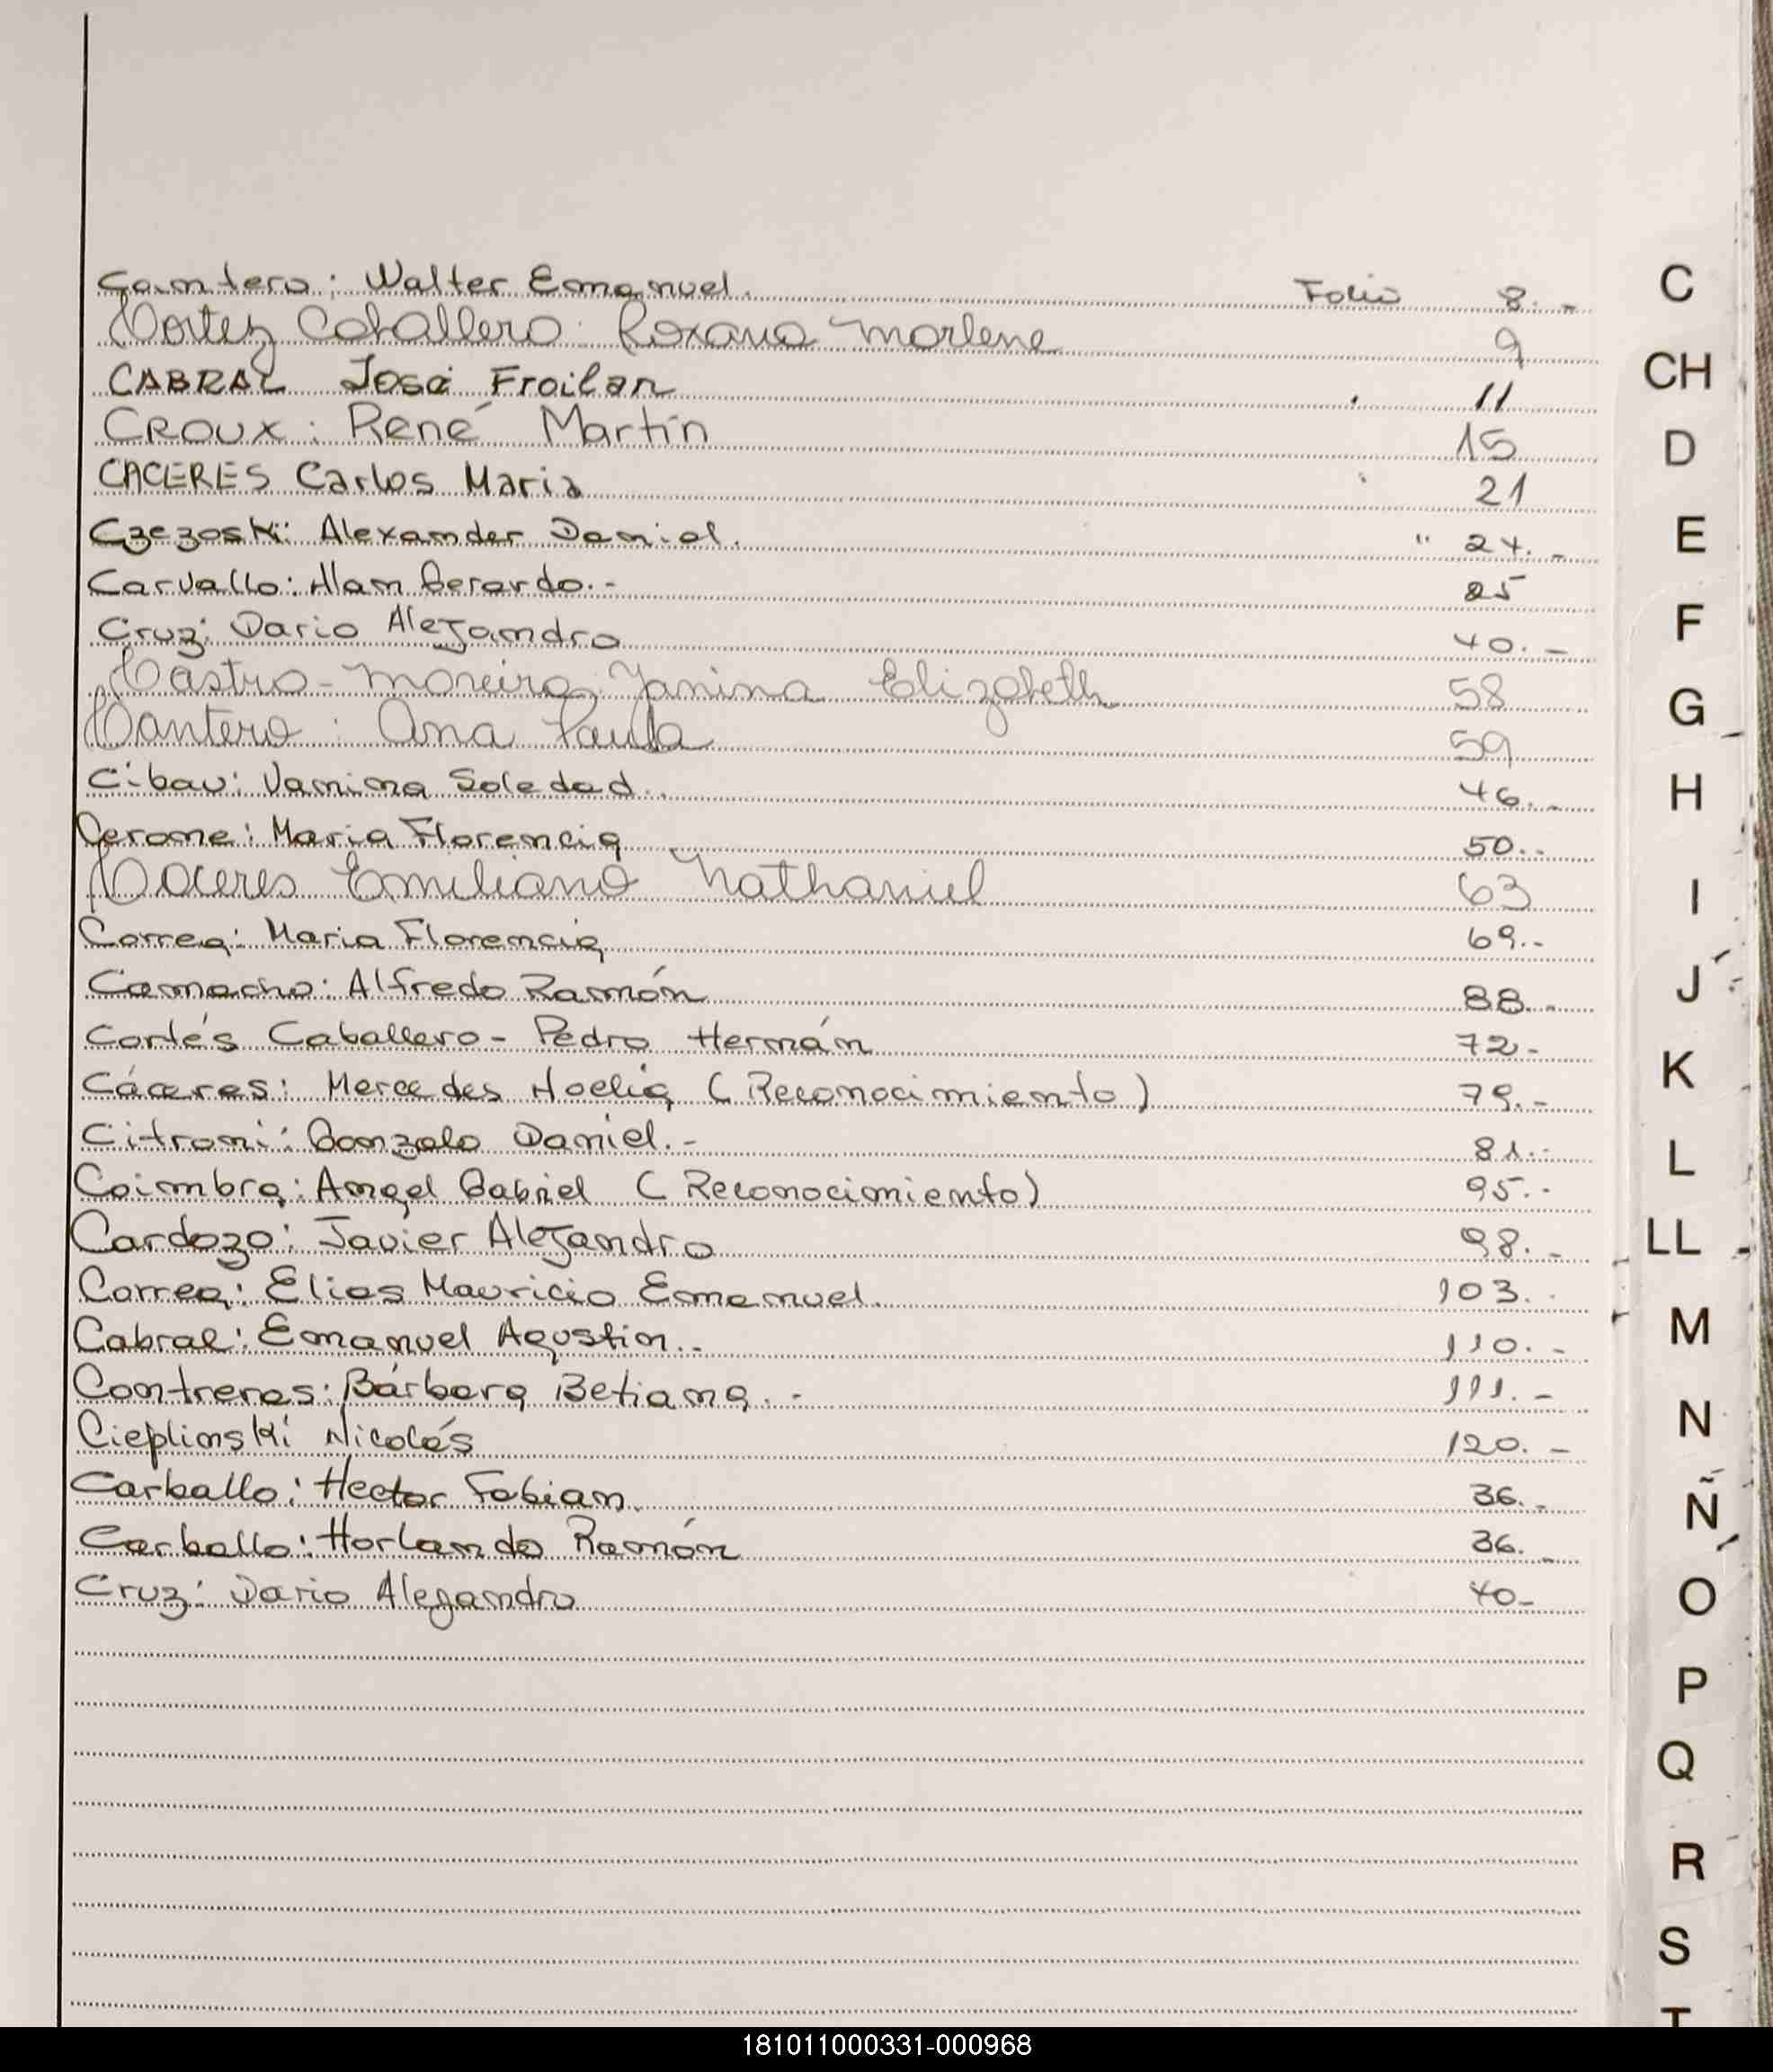 Cantero: Walter Emanuel. Folio 8.-
Cortez Caballero: Roxana Marlene 9
CABRAL José Froilan 11
CROUX: René Martín 15
CACERES Carlos Maria 21
Czezoski: Alexander Daniel. " 24.-
Carvallo: Alan Gerardo.- 25
Cruz: Dario Alejandro 40.-
Castro-Moreira Yanina Elizabeth 58
Cantero: Ana Paula 59
Cibau: Vanina Soledad.. 46.-
Cerone: Maria Florencia 50.-
Caceres Emiliano Nathaniel 63
Correa: Maria Florencia 69.-
Camacho: Alfredo Ramón 88.-
Cortés Caballero- Pedro Hernán 72-
Cáceres: Mercedes Noelia (Reconocimiento) 79.-
Citroni: Gonzalo Daniel.- 81.-
Coimbra: Angel Gabriel (Reconocimiento) 95.-
Cardozo: Javier Alejandro 98.-
Correa: Elias Mauricio Emanuel. 103.-
Cabral: Emanuel Agustin.. 110.-
Contreras: Bárbara Betiana.- 111.-
Cieplinski Nicolás 120.-
Carballo: Hector Fabian. 36.-
Carballo: Horlando Ramón 36.-
Cruz: Dario Alejandro 40-
C
CH
D
E
F
G
H
I
J
K
L
LL
M
N
Ñ
O
P
Q
R
S
T
181011000331-000968